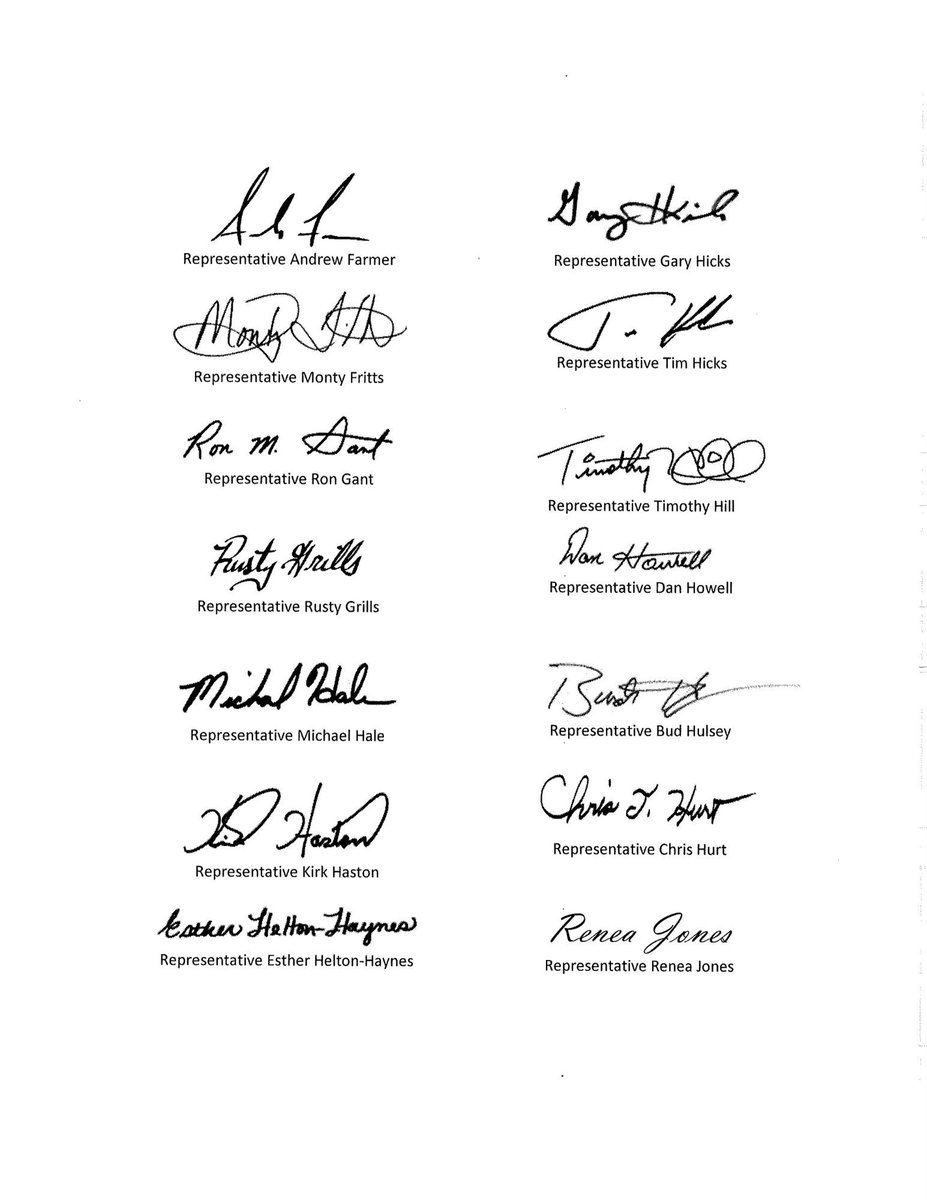 Representative Andrew Farmer
Gary Hicks
Representative Gary Hicks
Monty Fritts
Representative Monty Fritts
Representative Tim Hicks
Ron M. Gant
Representative Ron Gant
Timothy Hill
Representative Timothy Hill
Rusty Grills
Representative Rusty Grills
Dan Howell
Representative Dan Howell
Michael Hale
Representative Michael Hale
Representative Bud Hulsey
Kirk Haston
Representative Kirk Haston
Chris T. Hurt
Representative Chris Hurt
Esther Helton-Haynes
Representative Esther Helton-Haynes
Renea Jones
Representative Renea Jones